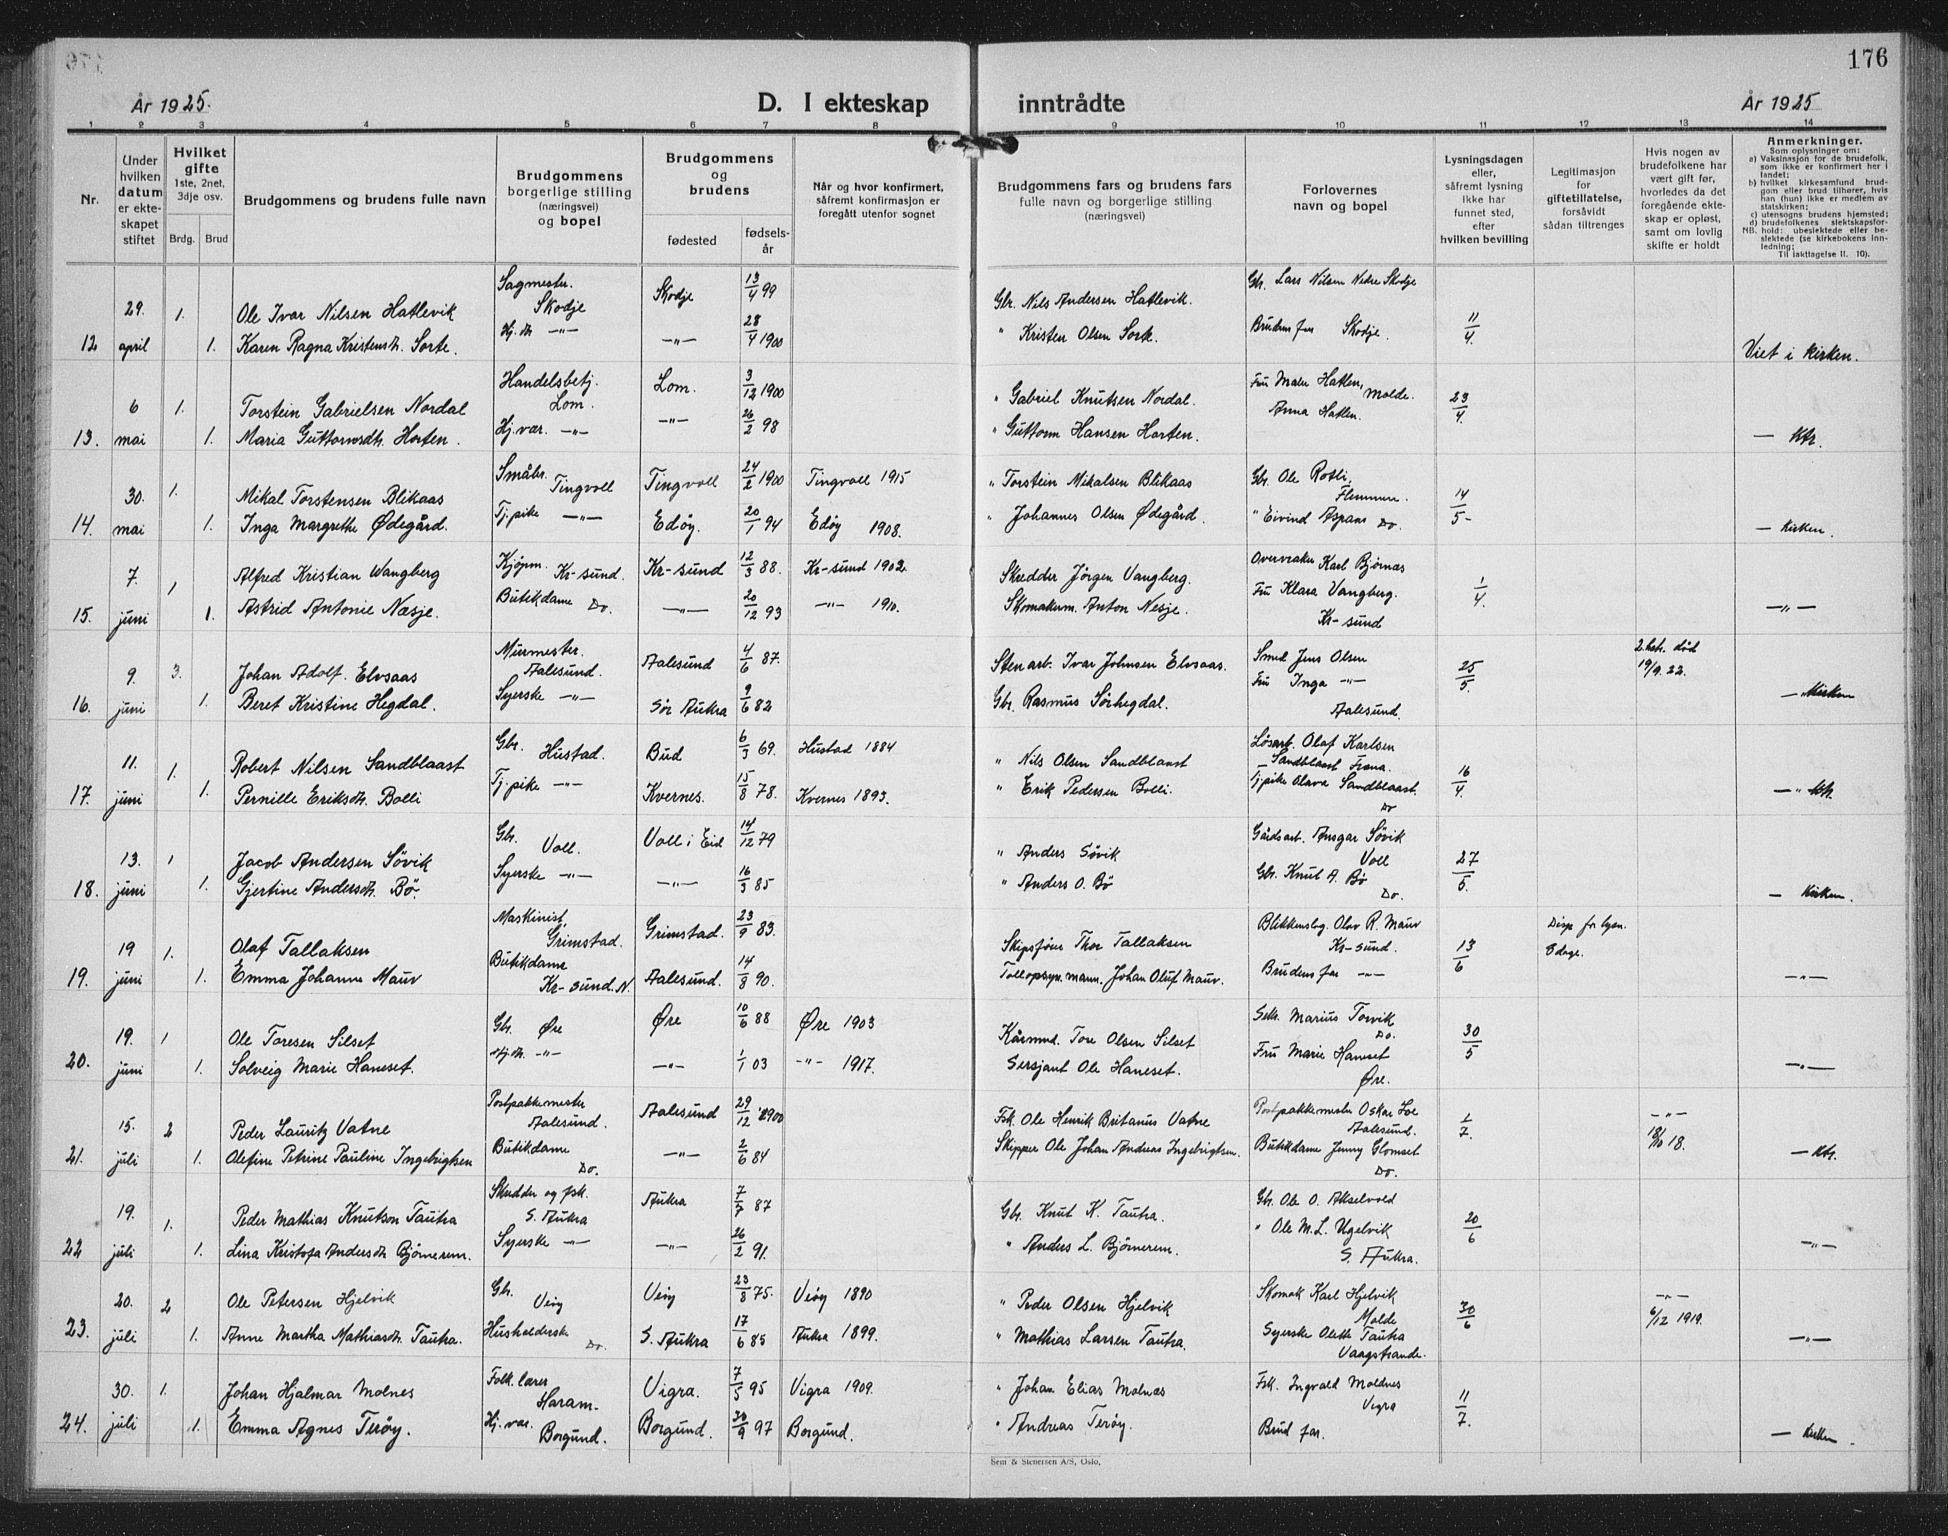 176
År 1925.
D. I ekteskap inntrådte
År 1925
1 2 3 4 5 6 7 8 9 10 11 12 13 14
Nr.
Under hvilken datum er ekteskapet stiftet
Hvilket gifte 1ste, 2net, 3dje osv.
Brdg. Brud
Brudgommens og brudens fulle navn
Brudgommens borgerlige stilling (næringsvei) og bopel
Brudgommens og brudens
fødested
fødselsår
Når og hvor konfirmert, såfremt konfirmasjon er foregått utenfor sognet
Brudgommens fars og brudens fars fulle navn og borgerlige stilling (næringsvei)
Forlovernes navn og bopel
Lysningsdagen eller, såfremt lysning ikke har funnet sted, efter hvilken bevilling
Legitimasjon for giftetillatelse, forsåvidt sådan tiltrenges
Hvis nogen av brudefolkene har vært gift før, hvorledes da det foregående ekteskap er opløst, samt om lovlig skifte er holdt
Anmerkninger.
Som oplysninger om:
a) Vaksinasjon for de brudefolk, som ikke er konfirmert her i landet;
b) hvilket kirkesamfund brudgom eller brud tilhører, hvis han (hun) ikke er medlem av statskirken;
c) utensogns brudens hjemsted;
d) brudefolkenes slektskapsforhold: ubeslektede eller beslektede (se kirkebokens innledning;
NB. Til iakttagelse II. 10).
29. 1. Ole Ivar Nilsen Hatlevik Sagmester. Skodje Skodje 13/4 99 Gbr. Nils Andersen Hatlevik. Gbr. Lars Nilsen Nedre Skodje
12 april 1. Karen Ragna Kristensdt. Sorte. Hj. dt. -"- -"- 28/4 1900 " Kristen Olsen Sort. Brudens far Skodje. 11/4. Viet i kirken.
6 1. Torstein Gabrielsen Nordal Handelsbetj. Lom. Lom. 3/12 1900 " Gabriel Knutsen Nordal. Fru Malen Hatlen, Molde.
13. mai 1. Maria Guttormsdt. Horten. Hj. vær. -"- -"- 26/2 98 " Guttorm Hansen Horten. Anna Hatlen. 23/4 — Ktr.
30. 1. Mikal Torstensen Blikaas Småbr. Tingvoll Tingvoll 24/2 1900 Tingvoll 1915 " Torstein Mikalsen Blikaas Gb. Ole Rotli, Flemmen.
14. mai 1. Inga Margrethe Ødegård. Tj. pike -"- Edøy. 20/1 94 Edøy 1908. " Johannes Olsen Ødegård. " Eivind Aspaas Do. 14/5 — Kirken.
7. 1 Alfred Kristian Wangberg Kjøpm. Kr-sund. Kr-sund 12/3 88. Kr-sund 1902 Skredder Jørgen Vangberg. Karl Bjørnæs
15. juni 1. Astrid Antonie Næsje. Butikdame Do. -"- 20/12 93 -"- 1910. Skomakerm. Anton Nesje. Fru Klara Vangberg. Kr-sund 1/4. -"-
9. 3. Johan Adolf Elvsaas Murmester. Aalesund. Aalesund 4/6 87. Sten arb. Ivar Johnsen Elvsaas. Smed Jens Olsen 2. hstr. død 19/9. 22.
16. juni 1. Beret Kristine Hegdal. Syerske -"- Sør Aukra 9/6 82 Gbr. Rasmus Sørhegdal. Fru Inga -"- Aalesund. 25/5. — Kirken
11. 1. Robert Nilsen Sandblaast Gbr. Hustad. Bud 6/3 69. Hustad 1884 " Nils Olsen Sandblaast Løsarb. Olaf Karlsen Sandblaast Fræna.
17. juni 1. Pernille Eriksdt. Bolli Tj. pike -"- Kvernes. 15/8 78. Kvernes 1893. " Erik Pedersen Bolli. Tj. pike Olava Sandblaast. Do 16/4. — " Ktr.
13. 1 Jacob Andersen Søvik Gbr. Voll. Voll i Eid 14/12 79 " Anders Søvik Gårdsarb. Ansgar Søvik Voll
18. juni 1. Gjertine Andersdt. Bø. Syerske -"- -"- 16/3 85 " Anders O. Bø Gbr. Knut A. Bø Do. 27/5. — Kirken.
19 1. Olaf Tallaksen Maskinist, Grimstad. Grimstad. 23/9 83. Skipsfører Thor Tallaksen Blikkenslag. Olav R. Mauv Kr-sund. Disp for lysn. 8 dage.
19. juni 1. Emma Johanne Mauv Butikdame Kr-sund. N. Aalesund. 14/8 90. Tollopsyn. mann. Johan Oluf Mauv. Brudens far -"- 13/6 -"-
19. 1 Ole Toresen Silset Gbr. Øre Øre 10/6 88 Øre 1903 Kårmand. Tore Olsen Silset Sekr. Marius Torvik Do.
20. juni 1. Solveig Marie Haneset. Hj. dt. -"- -"- 1/1 03 -"- 1917. Sersjant Ole Haneset. Fru Marie Haneset Øre. 30/5 -"-
15. 2 Peder Lauritz Vatne Postpakkemester Aalesund. Aalesund 29/12 1900 Fsk. Ole Henrik Britanus Vatne Postpakkemester Oskar Loe Aalesund. -"- 18/10 18.
21. juli 1. Olefine Petrine Pauline Ingebrigtsen Butikdame Do. -"- 2/6 84 Skipper Ole Johan Andreas Ingebrigtsen. Butikdame Jenny Glomset Do. 1/7. — Ktr.
19. 1. Peder Mathias Knutson Tautra Skredder og fsk. S. Aukra Aukra 7/5 87 Gbr. Knut K. Tautra. Gbr. Ole O. Akselvold
22 juli 1. Lina Kristofa Andersdt Bjømerem. Syerske -"- -"- 26/2 91. " Anders L. Bjømerem. " Ole M. L. Ugelvik S. Aukra. 20/6 -"-
20. 2 Ole Petersen Hjelvik Gbr. Veøy Veøy 23/8 75. Veøy 1890 " Peder Olsen Hjelvik Skomak Karl Hjelvik Molde -"- 6/12 1919.
23. juli 1. Anne Martha Mathiasdt. Tautra. Husholderske Do. S. Aukra 17/6 85 Aukra 1899. " Mathias Larsen Tautra. Syerske Olette Tautra Vaagstrande. 30/6 -"-
30. 1. Johan Hjalmar Molnes Folk. lærer Haram. Vigra. 7/5 95 Vigra 1909. " Johan Elias Molnæs Fsk. Ingvald Moldnes Vigra
24. juli 1. Emma Agnes Terøy. Hj. vær. Borgund. Borgund. 30/9 97 Borgund. " Andreas Terøy. Brud far. 11/7. — Kirken.
Sem & Stenersen A/S, Oslo.